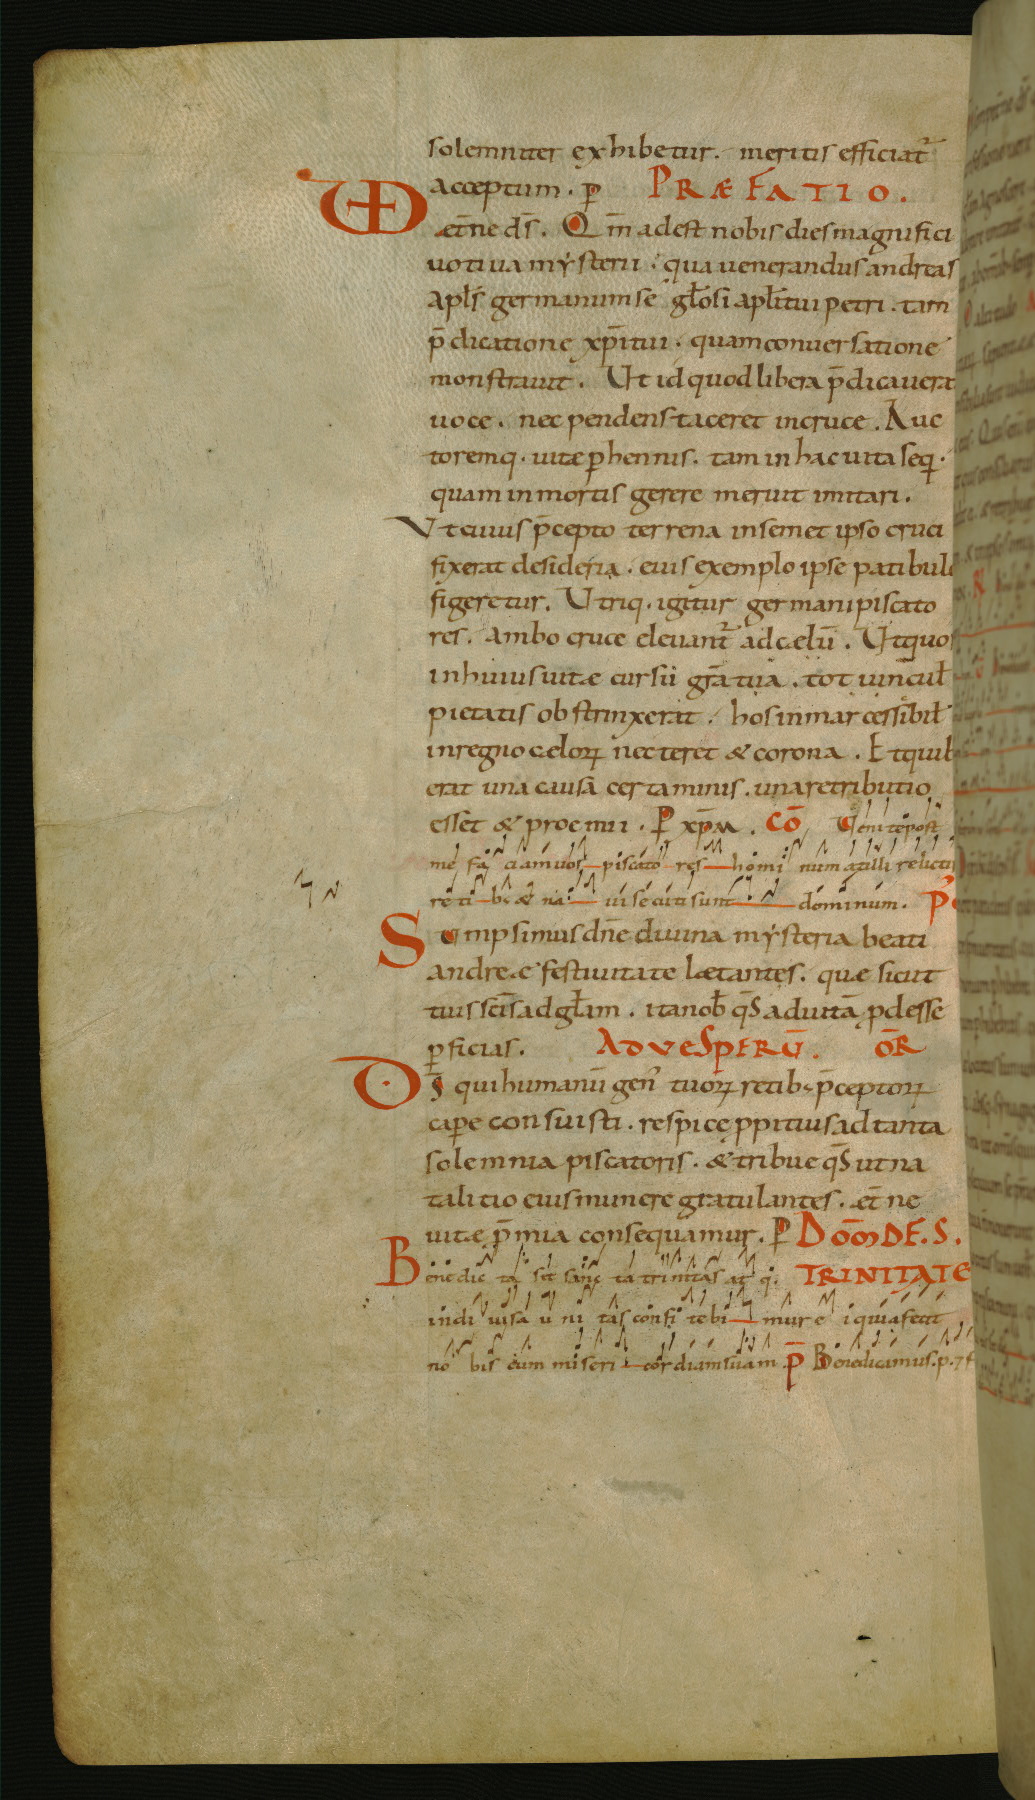 solemniter exhibetur. meritis efficiat᷑
acceptum. p̄ PRÆFATIO.
VD æt̄ne ds̄. Qm̄ adest nobis dies magnifici
uotiua mẏsterii. qua uenerandus andreas
apl̄s germanum se gl̄osi apl̄i tui petri. tam
p̄dicatione xp̄i tui. quam conuersatione
monstrauit. Ut id quod libera p̄dicauerat
uoce. nec pendens taceret in cruce. Auc
toremq. uitæ perhennis. tam in hac uita sequi.
quam in mortis gerere meruit imitari.
Ut cuius p̄cepto terrena in semet ipso cruci
fixerat desideria. eius exemplo ipse patibulo
figeretur. Utriq. igitur germani piscato
res. ambo cruce eleuant᷑ ad cælū. Ut quos
in huius uitæ cursū gr̄a tua. tot uincul̄
pietatis obstrinxerat. hos inmarcessibil̄
in regno celoꝝ necteret & corona. Et quib
erat una causa certaminis. una retributio
esset & proemii. P xp̄m. CŌ Uenite post
me faciam uos piscatores hominum at illi relictis
retib; & naui secuti sunt dominum.
Sumpsimus dn̄e diuina mẏsteria beati
andreæ festiuitate lætantes. quæ sicut
tuis sc̄is ad gl̄am. ita nob̄ qs̄ ad uitā ꝓdesse
ꝑficias. AD VESPERŪ. OR̄
Ds̄ qui humanū gen᷑ tuoꝝ retib; p̄ceptoꝝ
capere consuisti. respice ꝓpitius ad tanta
solemnia piscatoris. & tribue qs̄ ut na
talitio eius munere gratulantes. æt̄ne
uitæ p̄mia consequamur. P DOM̄ DE. S.
Benedicta sit sancta trinitas atq. TRINITATE
indiuisa unitas confitebimur ei quia fecit
nobiscum misericordiam suam. p̄ Benedicamus. p. 7 f